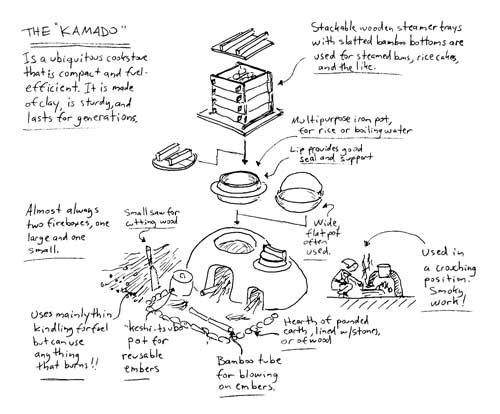 THE "KAMADO"
Is a ubiquitous cookstove
that is compact and fuel-
efficient. It is made
of clay, is sturdy, and
lasts for generations.
Stackable wooden steamer trays
with slatted bamboo bottoms are
used for steamed buns, rice cakes,
and the like.
Multipurpose iron pot,
for rice or boiling water
Lip provides good
seal and support
Almost always
two fireboxes, one
large and one
small.
Small saw for
cutting wood
Wide,
flat pot
often
used.
Used in
a crouching
position.
Smoky
work!
Uses mainly thin
kindling for fuel
but can use
anything
that burns!!
"keshi-tsubo"
pot for
reusable
embers
Bamboo tube
for blowing
on embers.
Hearth of pounded
earth, lined w/stones,
or of wood